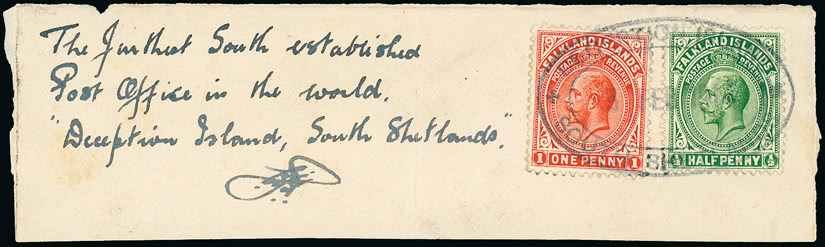 The Furthest South established
Post Office in the world.
"Deception Island, South Shetlands."
FALKLAND ISLANDS
POSTAGE REVENUE
1 ONE PENNY 1
FALKLAND ISLANDS
POSTAGE REVENUE
½ HALFPENNY ½